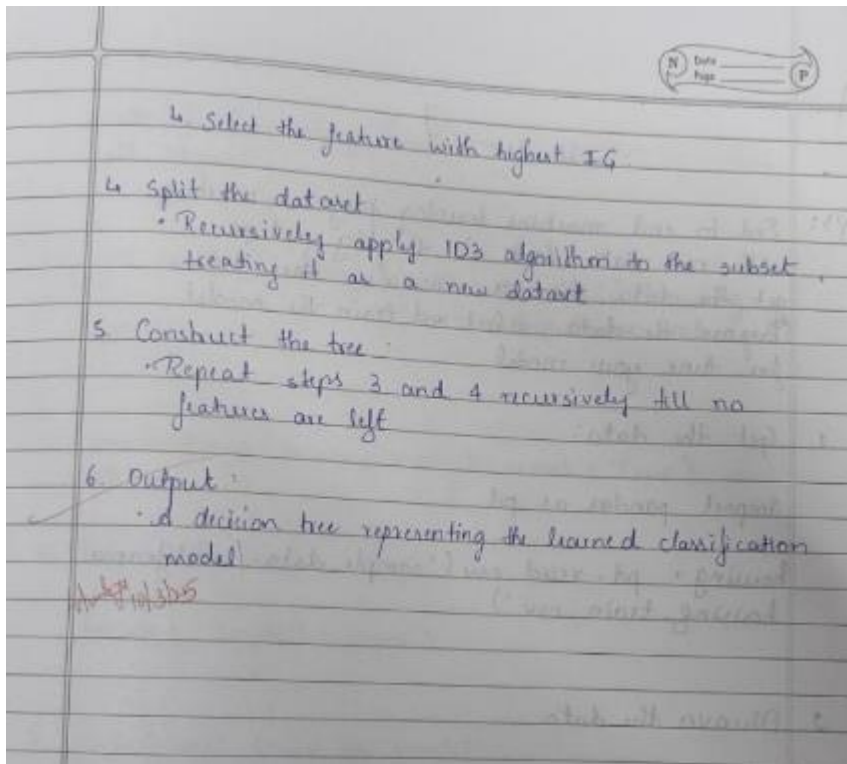 N Date
Page P
↳ Select the feature with highest IG
4 Split the dataset
• Recursively apply ID3 algorithm to the subset,
treating it as a new dataset
5. Construct the tree:
• Repeat steps 3 and 4 recursively till no
features are left
6. Output:
• A decision tree representing the learned classification
model